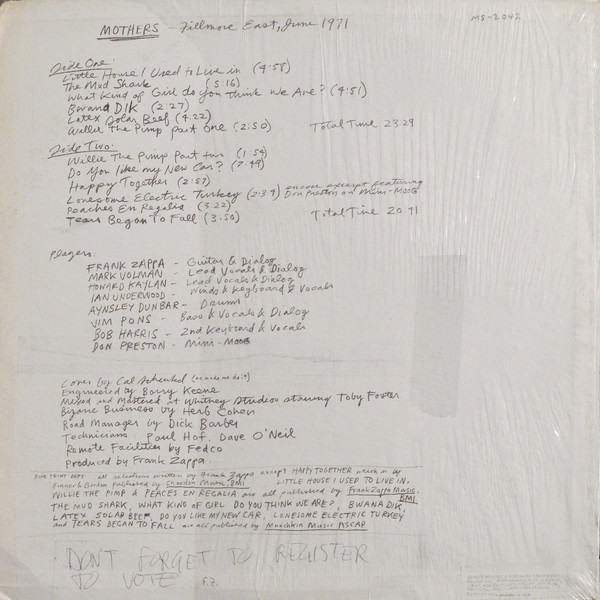 MOTHERS - Fillmore East, June 1971
MS-2042
Side One:
Little House I Used to Live in (4:58)
The Mud Shark (5:16)
What Kind of Girl do you Think We Are? (4:51)
Bwana DIK (2:27)
Latex Solar Beef (4:22)
Willie The Pimp part one (2:50) Total Time 23:29
Side Two:
Willie The Pimp Part two (1:54)
Do You like my New Car? (7:49)
Happy Together (2:57)
Lonesome Electric Turkey (2:39) encore excerpt featuring
Don Preston on Mini-MOOG
Peaches En Regalia (3:22)
Tears Began To Fall (3:50) Total Time 20 41
Players:
FRANK ZAPPA - Guitar & Dialog
MARK VOLMAN - Lead Vocals & Dialog
HOWARD KAYLAN - Lead Vocals & Dialog
IAN UNDERWOOD - Winds & Keyboard & Vocals
AYNSLEY DUNBAR - Drums
JIM PONS - Bass & Vocals & Dialog
BOB HARRIS - 2nd Keyboard & Vocals
DON PRESTON - Mini-MOOG
Cover by Cal Schenkel (he made me do it)
Engineered by Barry Keene
Mixed and Mastered at Whitney Studios starring Toby Foster
Bizarre Business by Herb Cohen
Road Manager by Dick Barber
Technicians Paul Hof, Dave O'Neil
Remote Facilities by Fedco
Produced by Frank Zappa
FINE PRINT DEPT. all selections written by Frank Zappa except HAPPY TOGETHER which is by
Bonner & Gordon published by Chardon Music, BMI LITTLE HOUSE I USED TO LIVE IN,
WILLIE THE PIMP & PEACES EN REGALIA are all published by Frank Zappa Music, BMI
THE MUD SHARK, WHAT KIND OF GIRL DO YOU THINK WE ARE?, BWANA DIK,
LATEX SOLAR BEEF, DO YOU LIKE MY NEW CAR, LONESOME ELECTRIC TURKEY
and TEARS BEGAN TO FALL are all published by Munchkin Music ASCAP
DON'T FORGET TO REGISTER
TO VOTE F.Z.